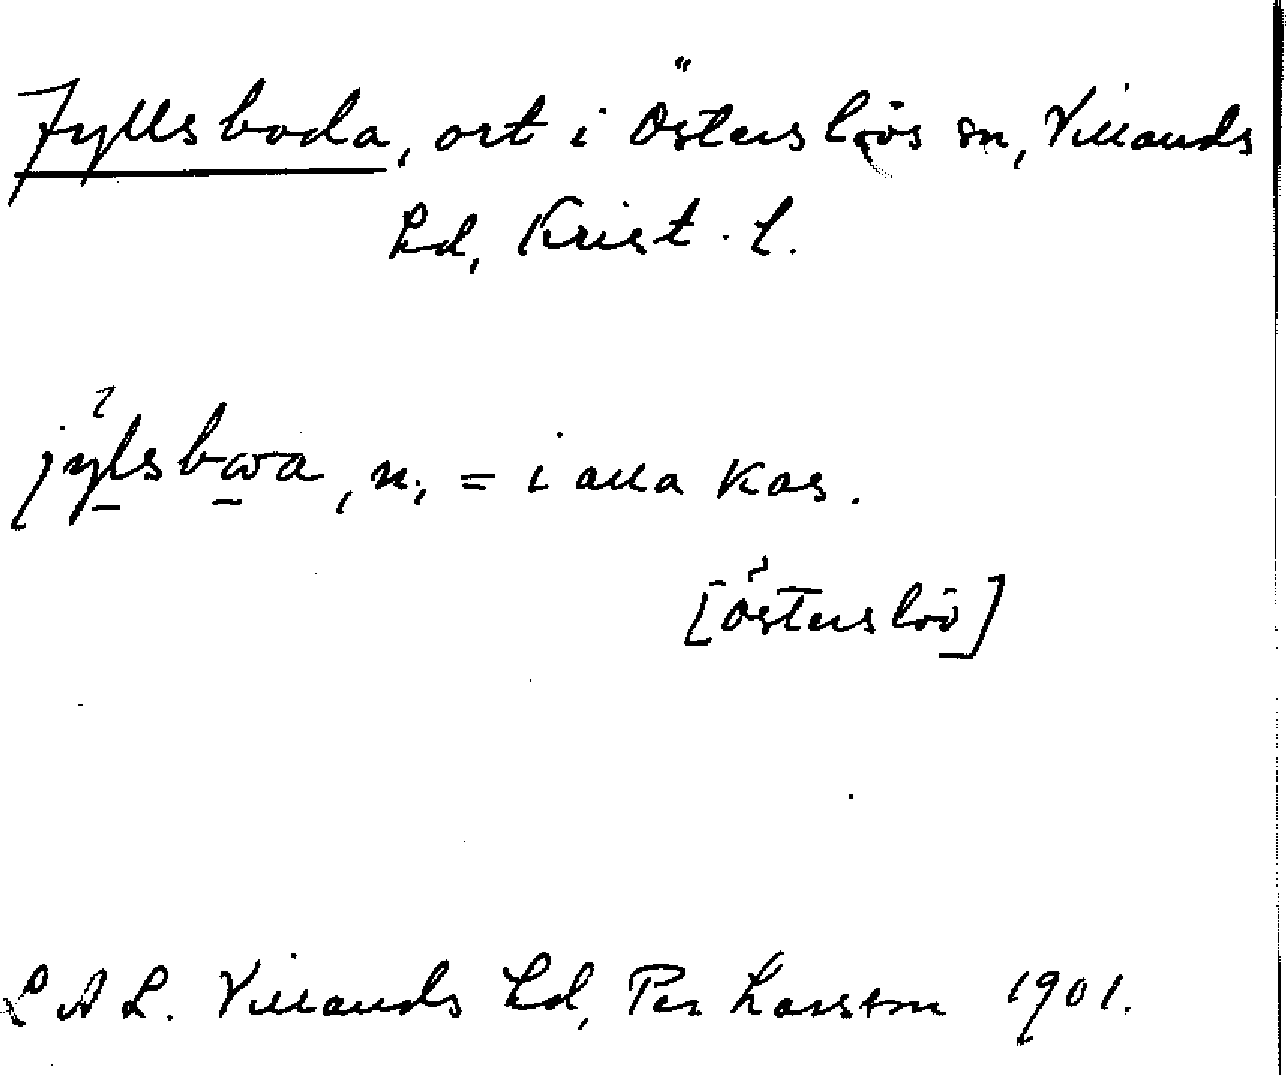 Jyllsboda, ort i Österslövs sn, Villands
hd, Krist. l.
jylsbωa, n., = i alla kas.
[Österslöv]
L A L. Villands hd, Per Larsson 1901.